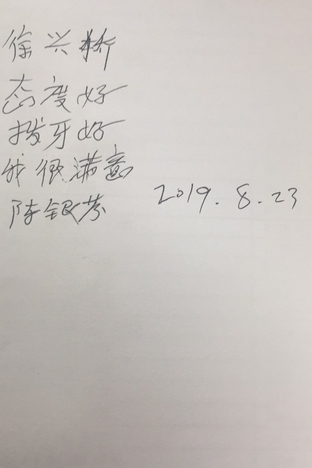 徐兴
态度好
拔牙好
我很满意
陈银芬 2019.8.23